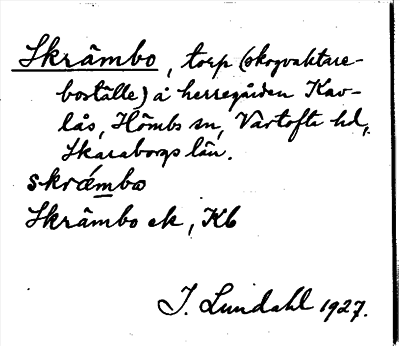 Skråmbo, torp (skogvaktare-
boställe) å herregården Kav-
lås, Hömbs sn, Vartofta hd,
Skaraborgs län.
skrǻmbo
Skråmbo ek, Kb
J. Lundahl 1927.